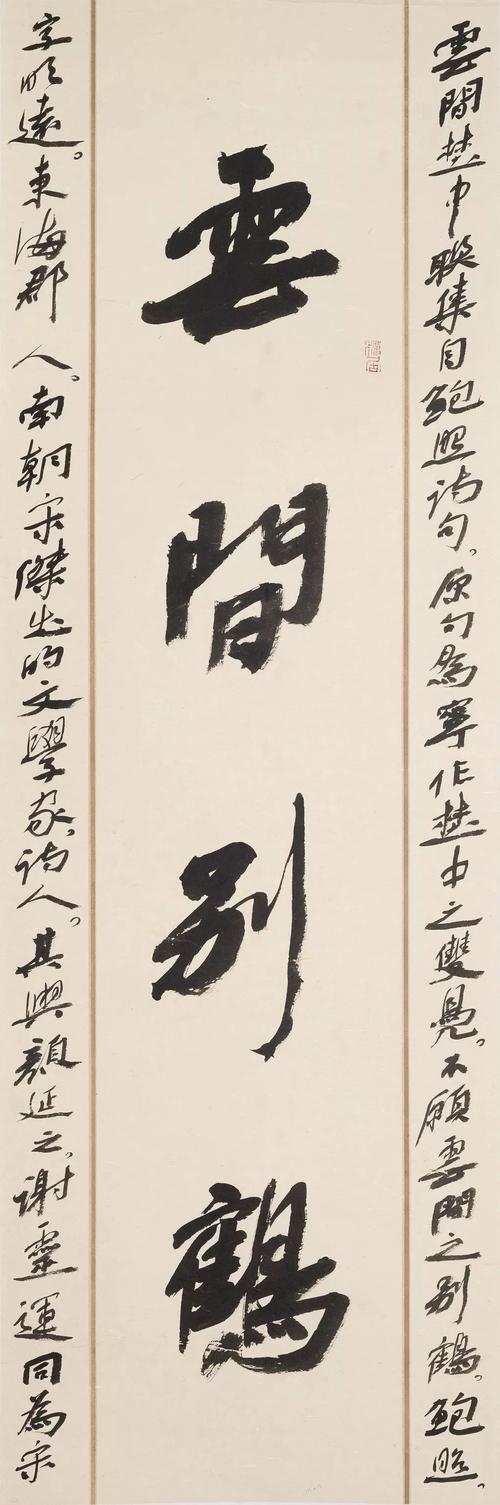 雲間埜中聯集自鮑照詩句。原句為寧作埜中之雙鳧。不願雲間之別鶴。鮑照。
雲間別鶴
字明遠。東海郡人。南朝宋傑出的文學家、詩人。其與顏延之、謝靈運同為宋